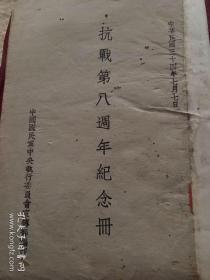 中華民國三十四年七月七日
抗戰第八週年紀念冊
中國國民黨中央執行委員會